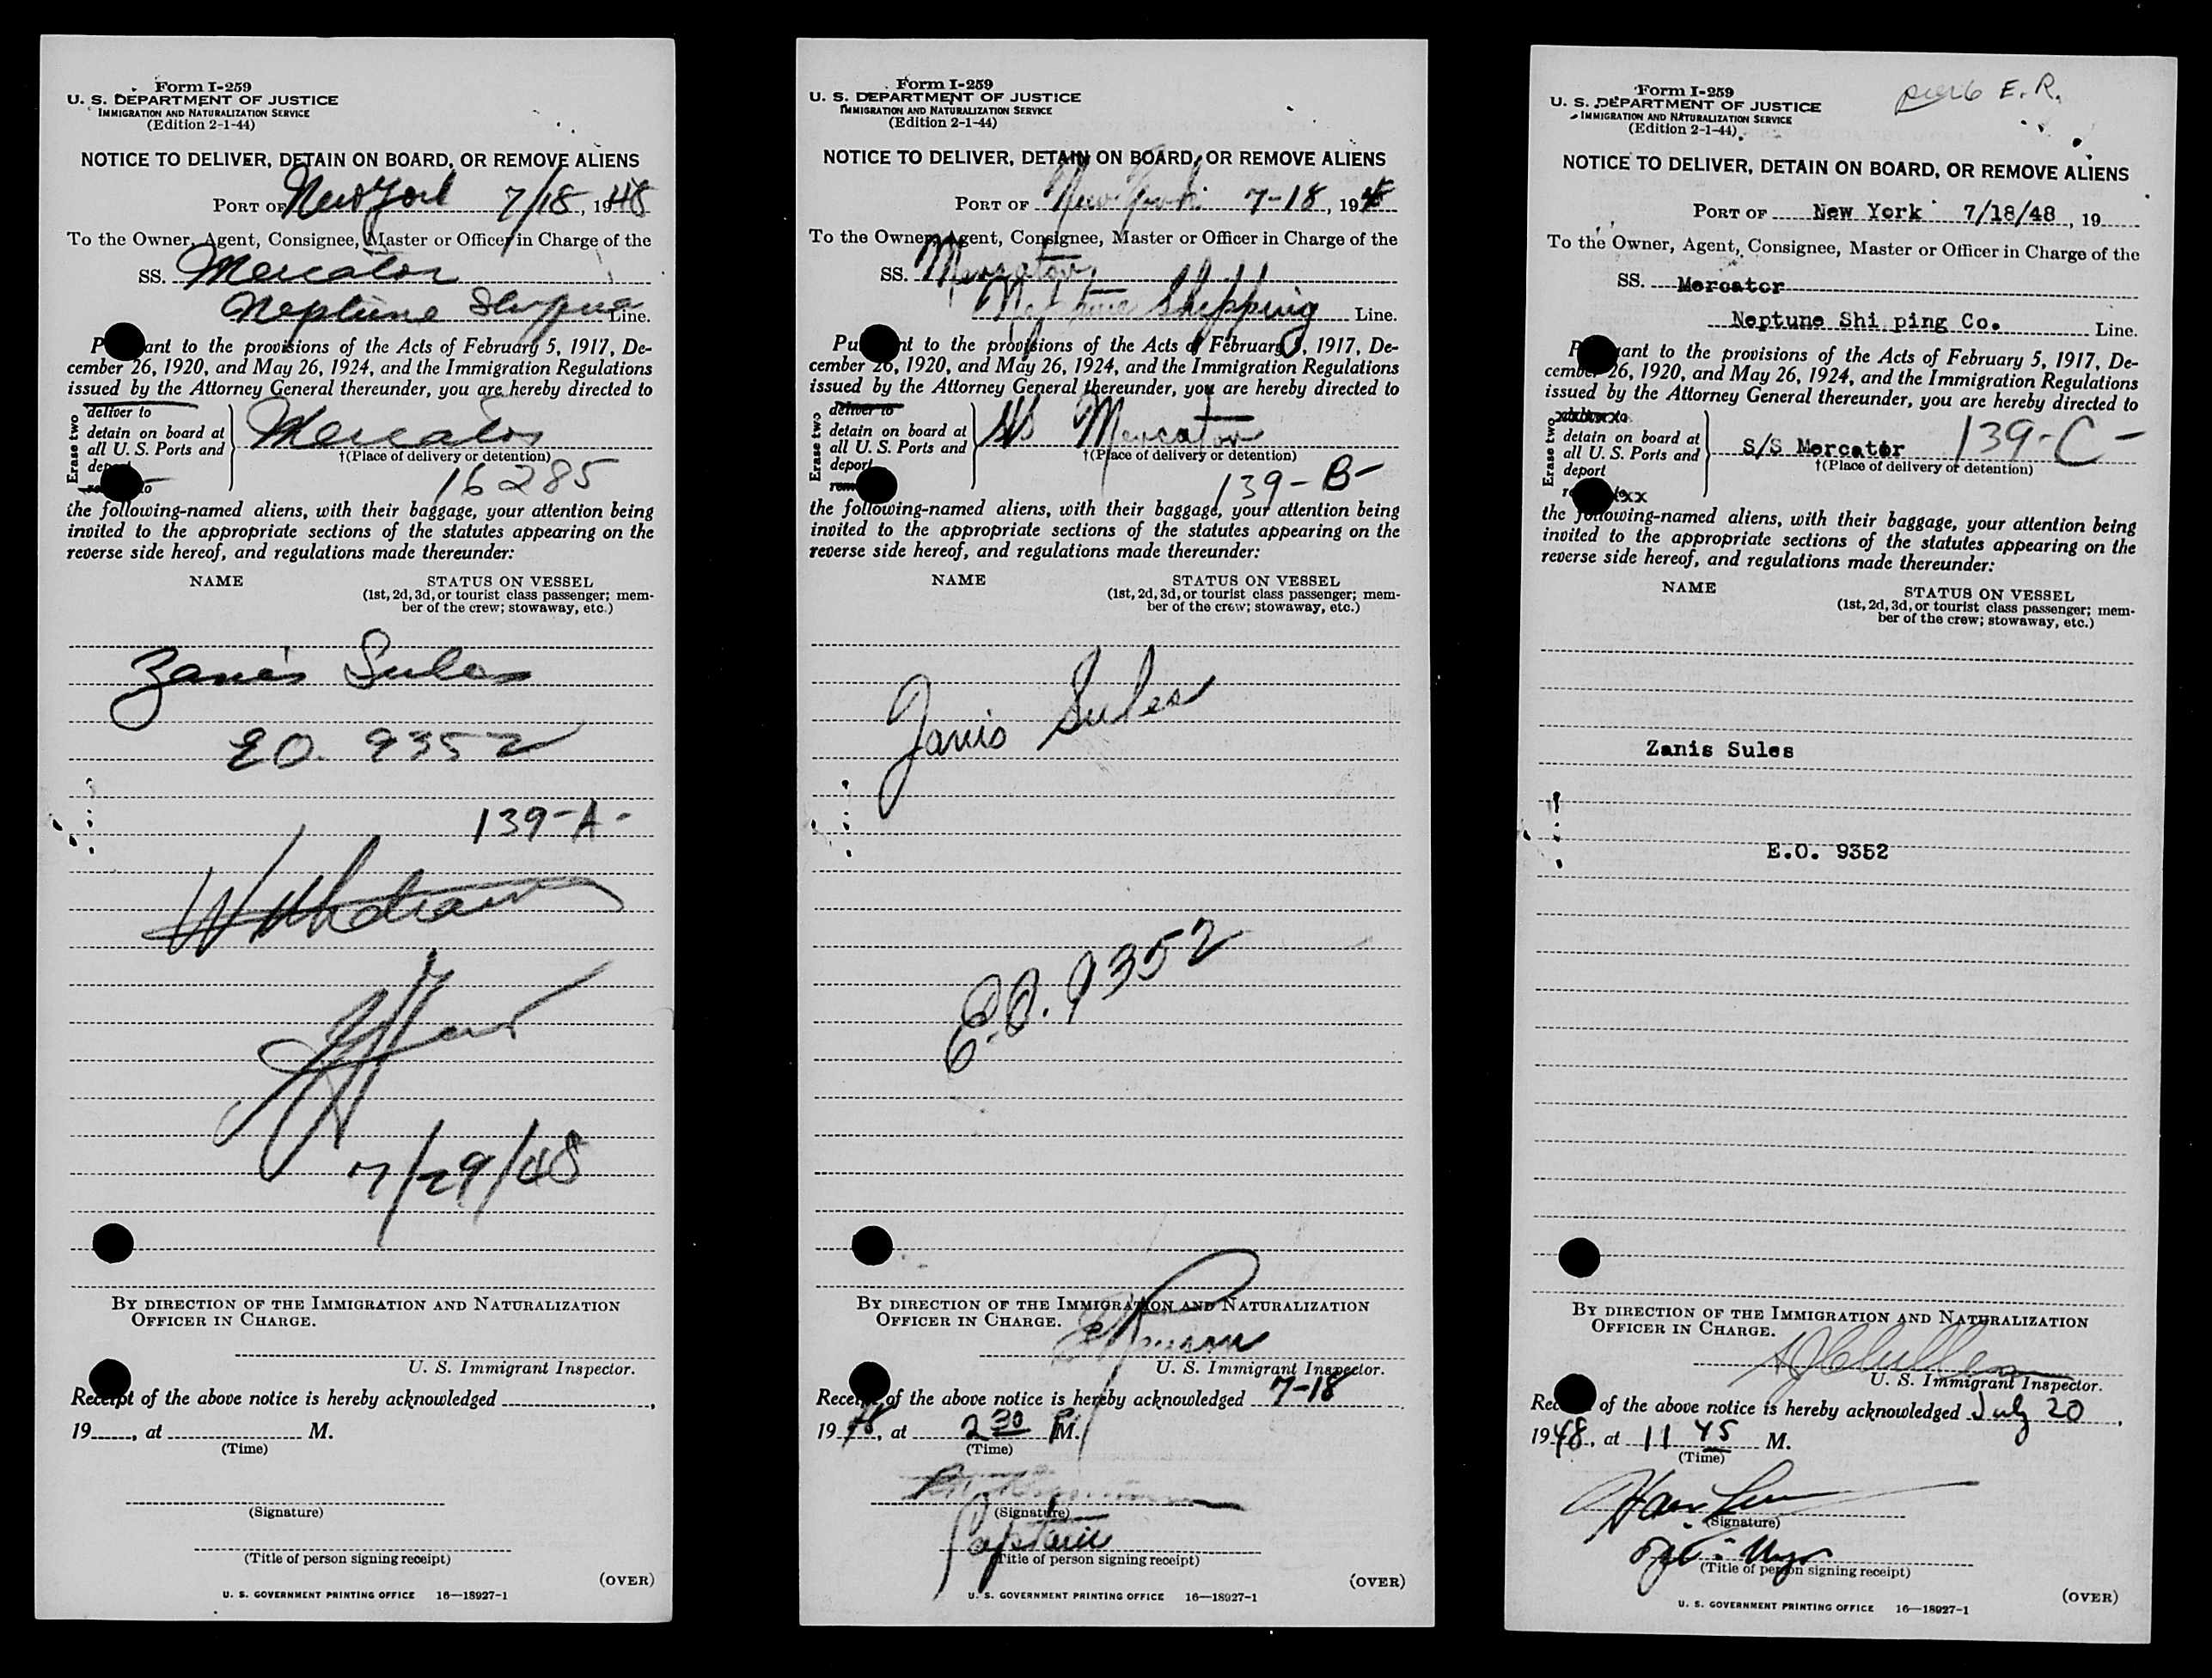 Form I-259
U. S. DEPARTMENT OF JUSTICE
IMMIGRATION AND NATURALIZATION SERVICE
(Edition 2-1-44)
NOTICE TO DELIVER, DETAIN ON BOARD, OR REMOVE ALIENS
PORT OF New York 7/18, 1948
To the Owner, Agent, Consignee, Master or Officer in Charge of the
SS. Mercator
Neptune Line.
P ant to the provisions of the Acts of February 5, 1917, De-
cember 26, 1920, and May 26, 1924, and the Immigration Regulations
issued by the Attorney General thereunder, you are hereby directed to
Erase two
deliver to
detain on board at
all U. S. Ports and
Mercator
†(Place of delivery or detention)
16285
the following-named aliens, with their baggage, your attention being
invited to the appropriate sections of the statutes appearing on the
reverse side hereof, and regulations made thereunder:
NAME STATUS ON VESSEL
(1st, 2d, 3d, or tourist class passenger; mem-
ber of the crew; stowaway, etc.)
Zanis Sules
EO. 9352
139-A-
Withdrawn
7/29/48
BY DIRECTION OF THE IMMIGRATION AND NATURALIZATION
OFFICER IN CHARGE.
U. S. Immigrant Inspector.
Receipt of the above notice is hereby acknowledged ,
19 , at M.
(Time)
(Signature)
(Title of person signing receipt)
(OVER)
U. S. GOVERNMENT PRINTING OFFICE 16—18927-1
Form I-259
U. S. DEPARTMENT OF JUSTICE
IMMIGRATION AND NATURALIZATION SERVICE
(Edition 2-1-44)
NOTICE TO DELIVER, DETAIN ON BOARD, OR REMOVE ALIENS
PORT OF New York 7-18, 1948
To the Owner, Agent, Consignee, Master or Officer in Charge of the
SS. Mercator
Neptune Shipping Line.
Pu nt to the provisions of the Acts of February 5, 1917, De-
cember 26, 1920, and May 26, 1924, and the Immigration Regulations
issued by the Attorney General thereunder, you are hereby directed to
Erase two
deliver to
detain on board at
all U. S. Ports and
deport
S/S Mercator
†(Place of delivery or detention)
139-B-
the following-named aliens, with their baggage, your attention being
invited to the appropriate sections of the statutes appearing on the
reverse side hereof, and regulations made thereunder:
NAME STATUS ON VESSEL
(1st, 2d, 3d, or tourist class passenger; mem-
ber of the crew; stowaway, etc.)
Janis Sules
E.O. 9352
BY DIRECTION OF THE IMMIGRATION AND NATURALIZATION
OFFICER IN CHARGE.
U. S. Immigrant Inspector.
Receipt of the above notice is hereby acknowledged 7-18
1948, at 2 30 PM.
(Time)
(Signature)
Captain
(Title of person signing receipt)
(OVER)
U. S. GOVERNMENT PRINTING OFFICE 16—18927-1
pier 6 E. R.
Form I-259
U. S. DEPARTMENT OF JUSTICE
IMMIGRATION AND NATURALIZATION SERVICE
(Edition 2-1-44)
NOTICE TO DELIVER, DETAIN ON BOARD, OR REMOVE ALIENS
PORT OF New York 7/18/48, 19
To the Owner, Agent, Consignee, Master or Officer in Charge of the
SS. Mercator
Neptune Shi ping Co. Line.
P uant to the provisions of the Acts of February 5, 1917, De-
cember 26, 1920, and May 26, 1924, and the Immigration Regulations
issued by the Attorney General thereunder, you are hereby directed to
Erase two
detain on board at
all U. S. Ports and
deport
S/S Mercator 139-C-
†(Place of delivery or detention)
the following-named aliens, with their baggage, your attention being
invited to the appropriate sections of the statutes appearing on the
reverse side hereof, and regulations made thereunder:
NAME STATUS ON VESSEL
(1st, 2d, 3d, or tourist class passenger; mem-
ber of the crew; stowaway, etc.)
Zanis Sules
E.O. 9352
BY DIRECTION OF THE IMMIGRATION AND NATURALIZATION
OFFICER IN CHARGE.
U. S. Immigrant Inspector.
Rec of the above notice is hereby acknowledged July 20,
1948, at 11 45 M.
(Time)
(Signature)
(Title of person signing receipt)
(OVER)
U. S. GOVERNMENT PRINTING OFFICE 16—18927-1